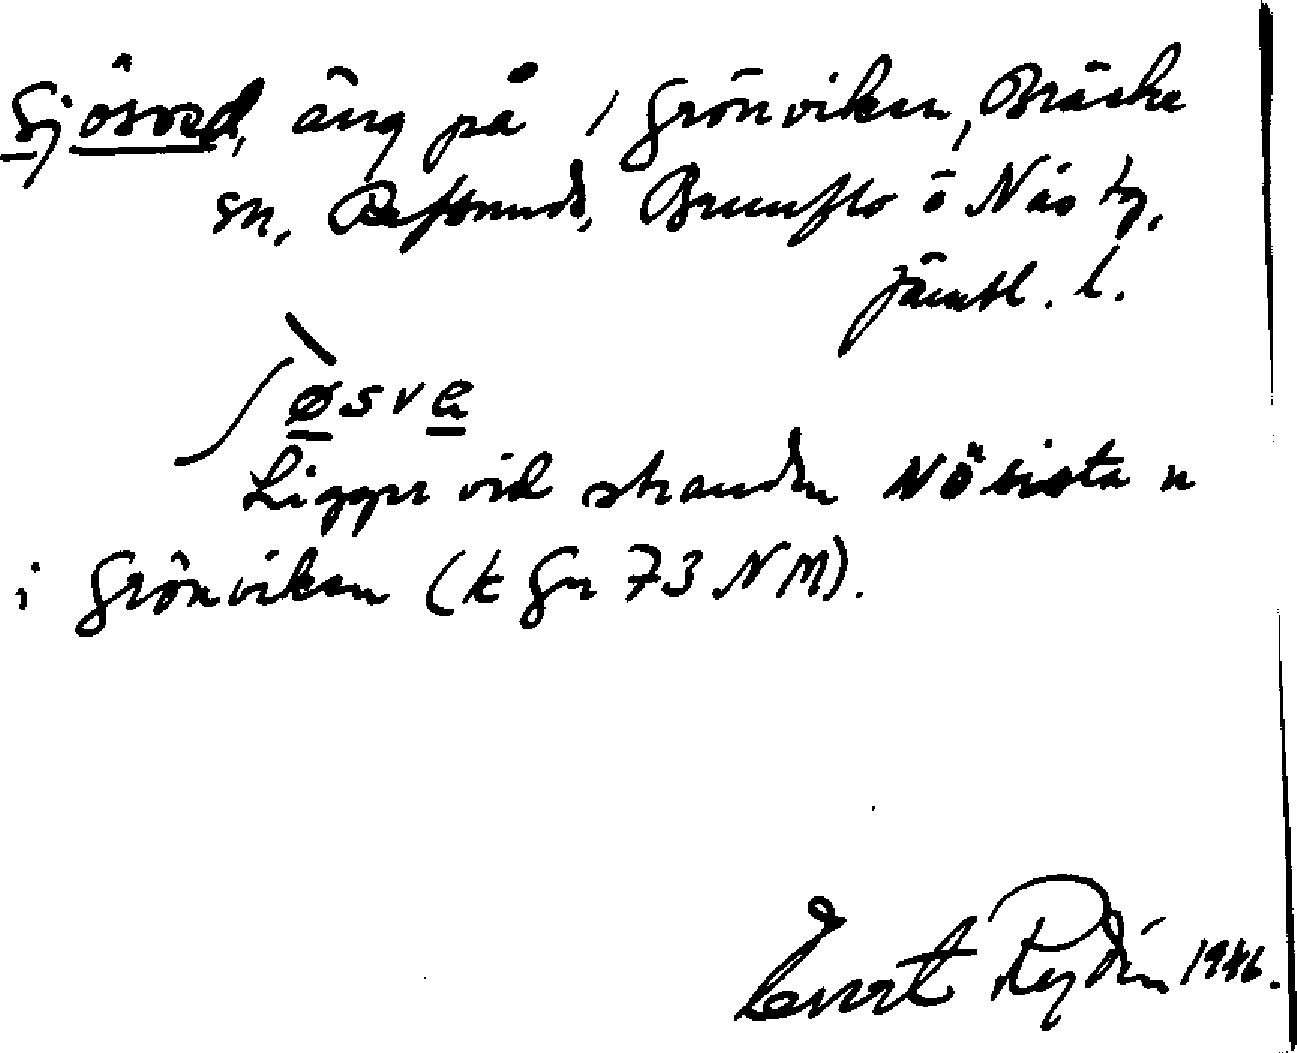 Sjösved, äng på 1 Grönviken, Bräcke
sn, Refsunds, Brunflo o Näs tg,
Jämtl. l.
ʃøsve
Ligger vid stranden NÖ sista n
i Grönviken (k Gr 73 NM).
Evert Rydén 1946.